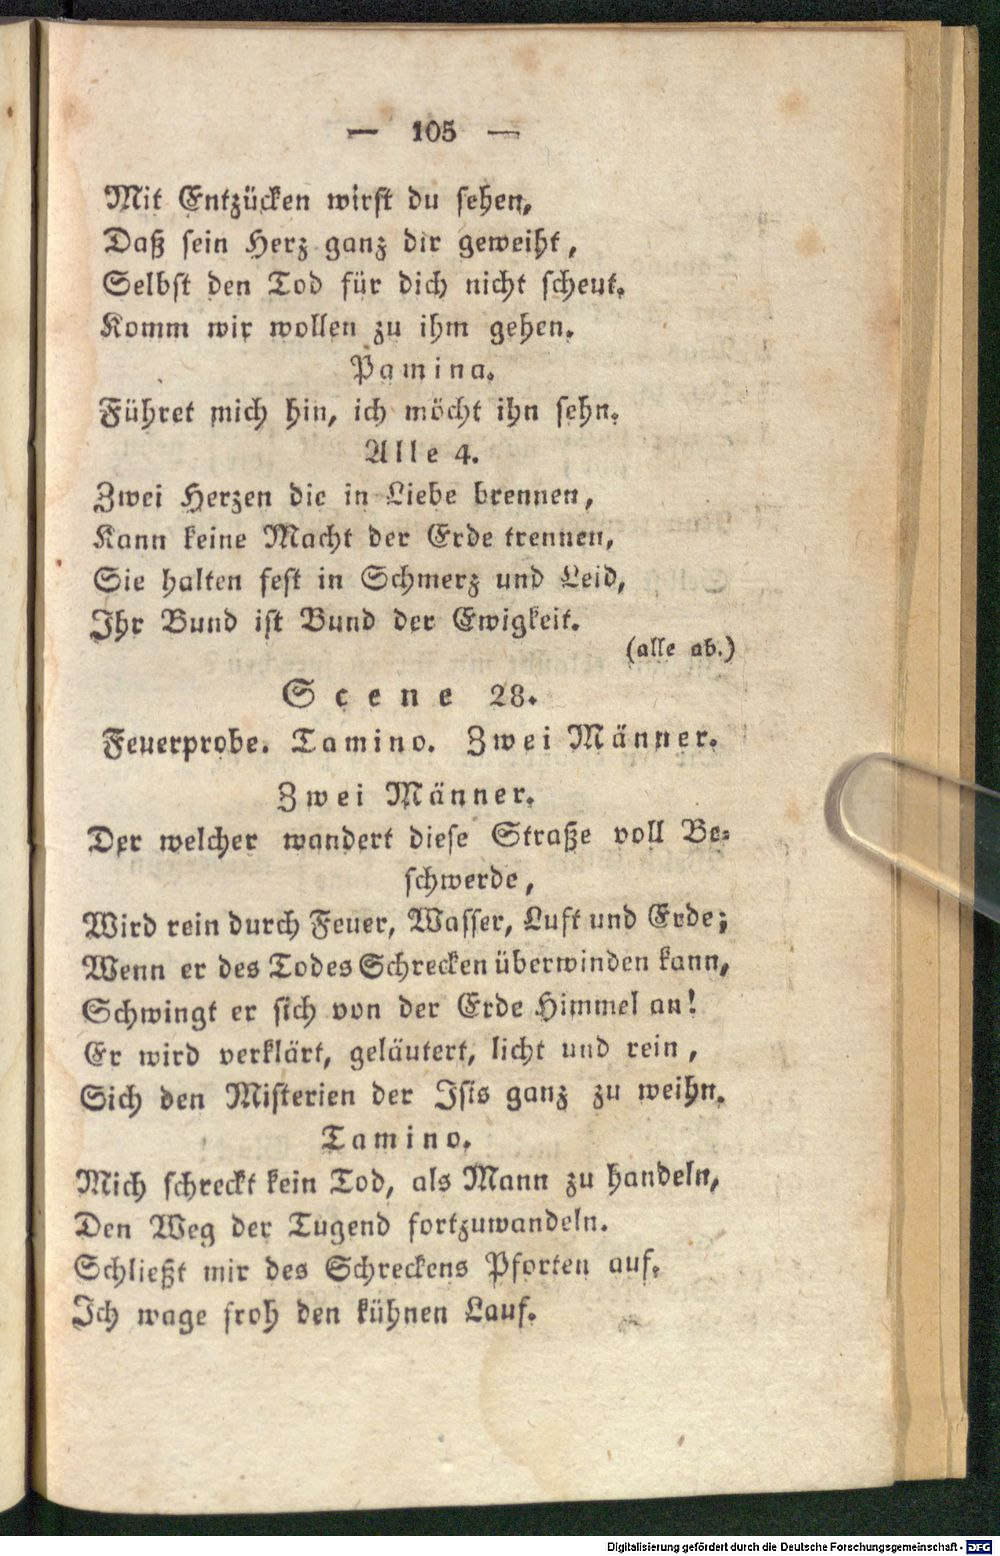 — 105 —
Mit Entzücken wirst du sehen,
Daß sein Herz ganz dir geweiht,
Selbst den Tod für dich nicht scheut.
Komm wir wollen zu ihm gehen.
Pamina.
Führet mich hin, ich möcht ihn sehn.
Alle 4.
Zwei Herzen die in Liebe brennen,
Kann keine Macht der Erde trennen,
Sie halten fest in Schmerz und Leid,
Ihr Bund ist Bund der Ewigkeit.
(alle ab.)
Scene 28.
Feuerprobe. Tamino. Zwei Männer.
Zwei Männer.
Der welcher wandert diese Straße voll Be-
schwerde,
Wird rein durch Feuer, Wasser, Luft und Erde;
Wenn er des Todes Schrecken überwinden kann,
Schwingt er sich von der Erde Himmel an!
Er wird verklärt, geläutert, licht und rein,
Sich den Misterien der Isis ganz zu weihn.
Tamino.
Mich schreckt kein Tod, als Mann zu handeln,
Den Weg der Tugend fortzuwandeln.
Schließt mir des Schreckens Pforten auf.
Ich wage froh den kühnen Lauf.
Digitalisierung gefördert durch die Deutsche Forschungsgemeinschaft - DFG